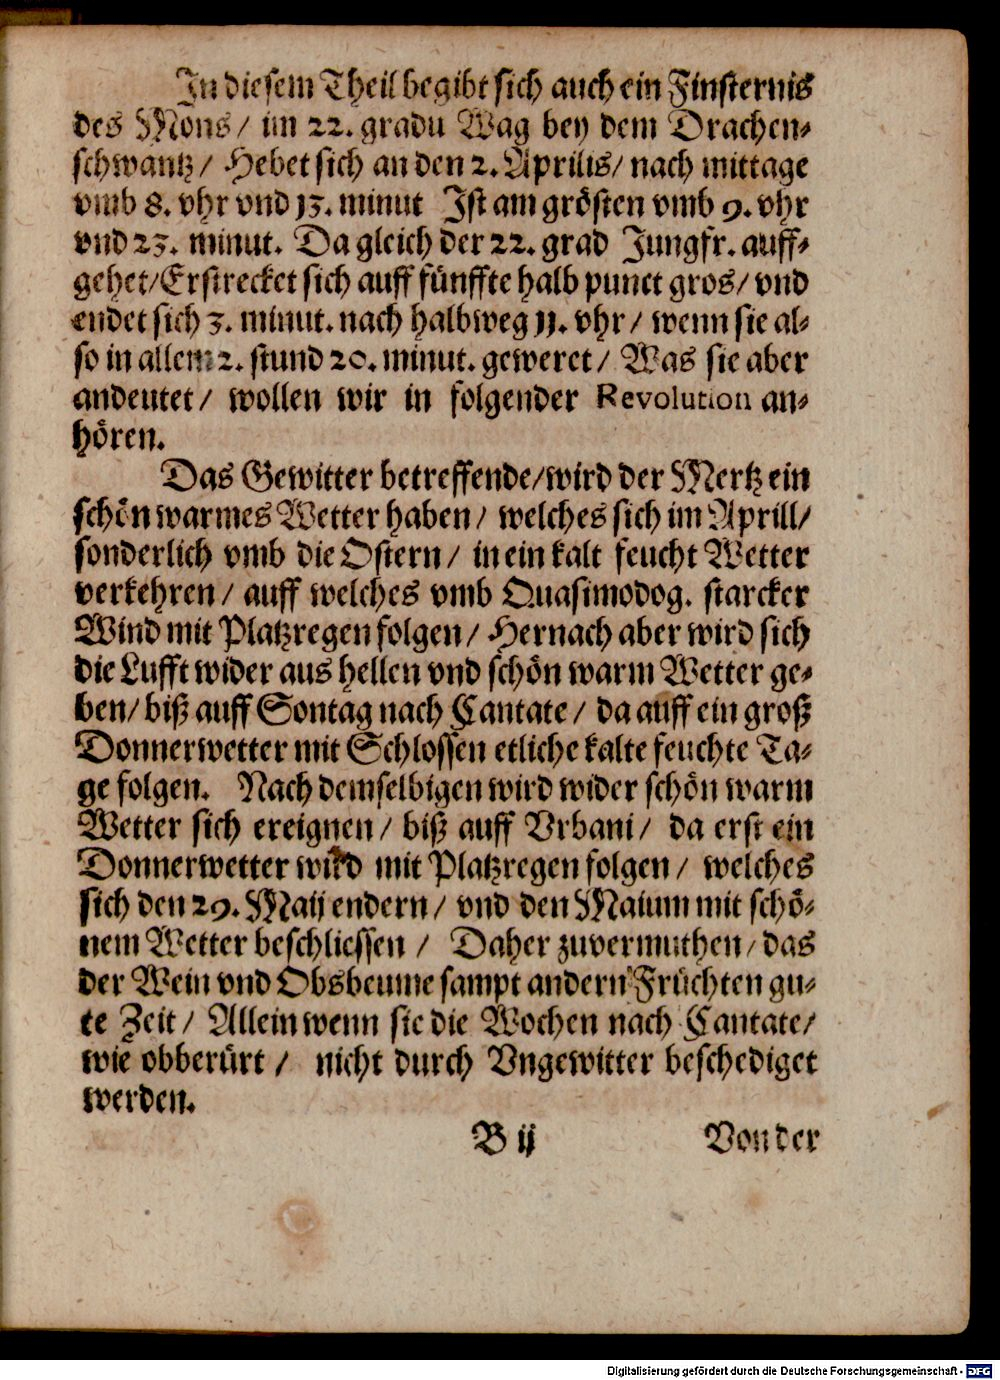 In diesem Theil begibt sich auch ein Finsternis
des Mons / im 22. gradu Wag bey dem Drachen-
schwantz / Hebet sich an den 2. Aprilis / nach mittage
vmb 8. vhr vnd 13. minut Ist am grösten vmb 9. vhr
vnd 23. minut. Da gleich der 22. grad Jungfr. auff-
gehet / Erstrecket sich auff fünffte halb punct gros / vnd
endet sich 3. minut. nach halbweg 11. vhr / wenn sie al-
so in allem 2. stund 20. minut. geweret / Was sie aber
andeutet / wollen wir in folgender Revolution an-
hören.
Das Gewitter betreffende / wird der Mertz ein
schön warmes Wetter haben / welches sich im Aprill /
sonderlich vmb die Ostern / in ein kalt feucht Wetter
verkehren / auff welches vmb Quasimodog. starcker
Wind mit Platzregen folgen / Hernach aber wird sich
die Lufft wider aus hellen vnd schön warm Wetter ge-
ben / biß auff Sontag nach Cantate / da auff ein groß
Donnerwetter mit Schlossen etliche kalte feuchte Ta-
ge folgen. Nach demselbigen wird wider schön warm
Wetter sich ereignen / biß auff Vrbani / da erst ein
Donnerwetter wird mit Platzregen folgen / welches
sich den 29. Maij endern / vnd den Maium mit schö-
nem Wetter beschliessen / Daher zuvermuthen / das
der Wein vnd Obsbeume sampt andern Früchten gu-
te Zeit / Allein wenn sie die Wochen nach Cantate /
wie obberürt / nicht durch Vngewitter beschediget
werden.
B ij Von der
Digitalisierung gefördert durch die Deutsche Forschungsgemeinschaft - DFG